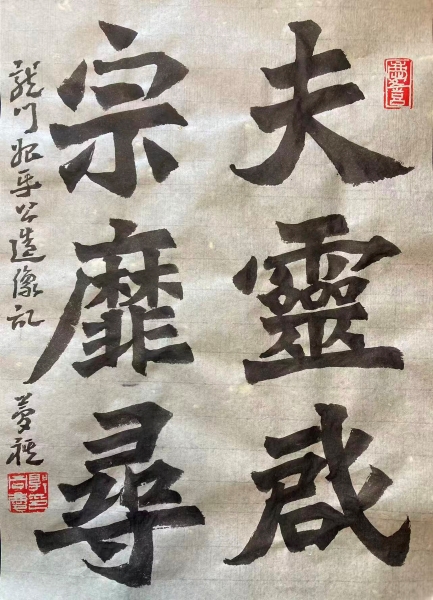 夫靈啟
宗靡尋
龍門始平公造像記